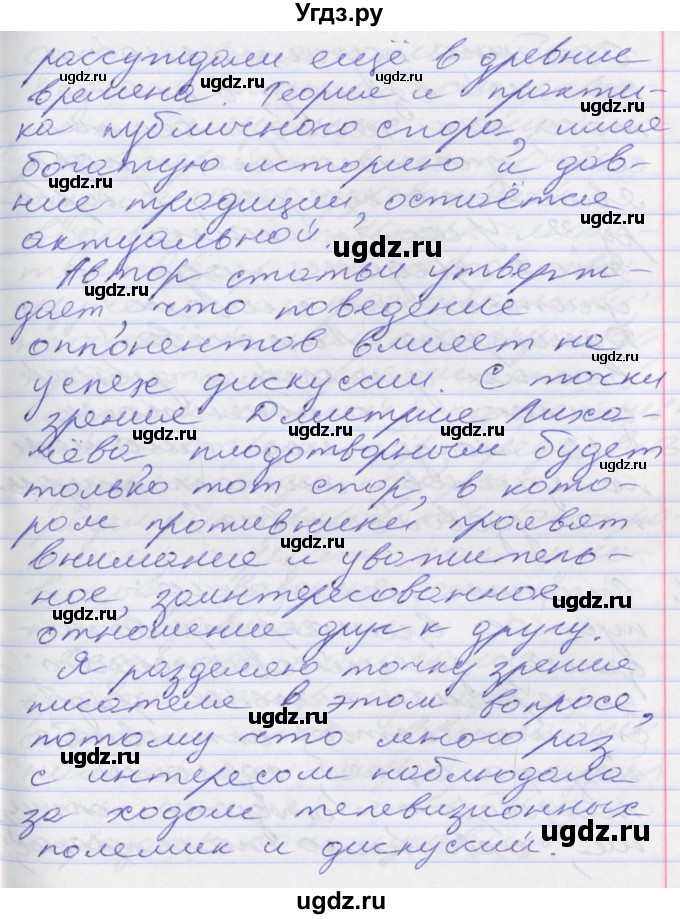 Угдз.ру
рассуждали ещё в древние
времена. Теория и практи-
ка публичного спора, имея
богатую историю и дав-
ние традиции, остаётся
актуальной.
Автор статьи утверж-
дает, что поведение
оппонентов влияет на
успех дискуссии. С точки
зрения Дмитрия Лиха-
чёва, плодотворным будет
только тот спор, в кото-
ром противники проявят
внимание и уважитель-
ное, заинтересованное
отношение друг к другу.
Я разделяю точку зрения
писателя в этом вопросе,
потому что много раз
с интересом наблюдала
за ходом телевизионных
полемик и дискуссий.
ugdz.ru